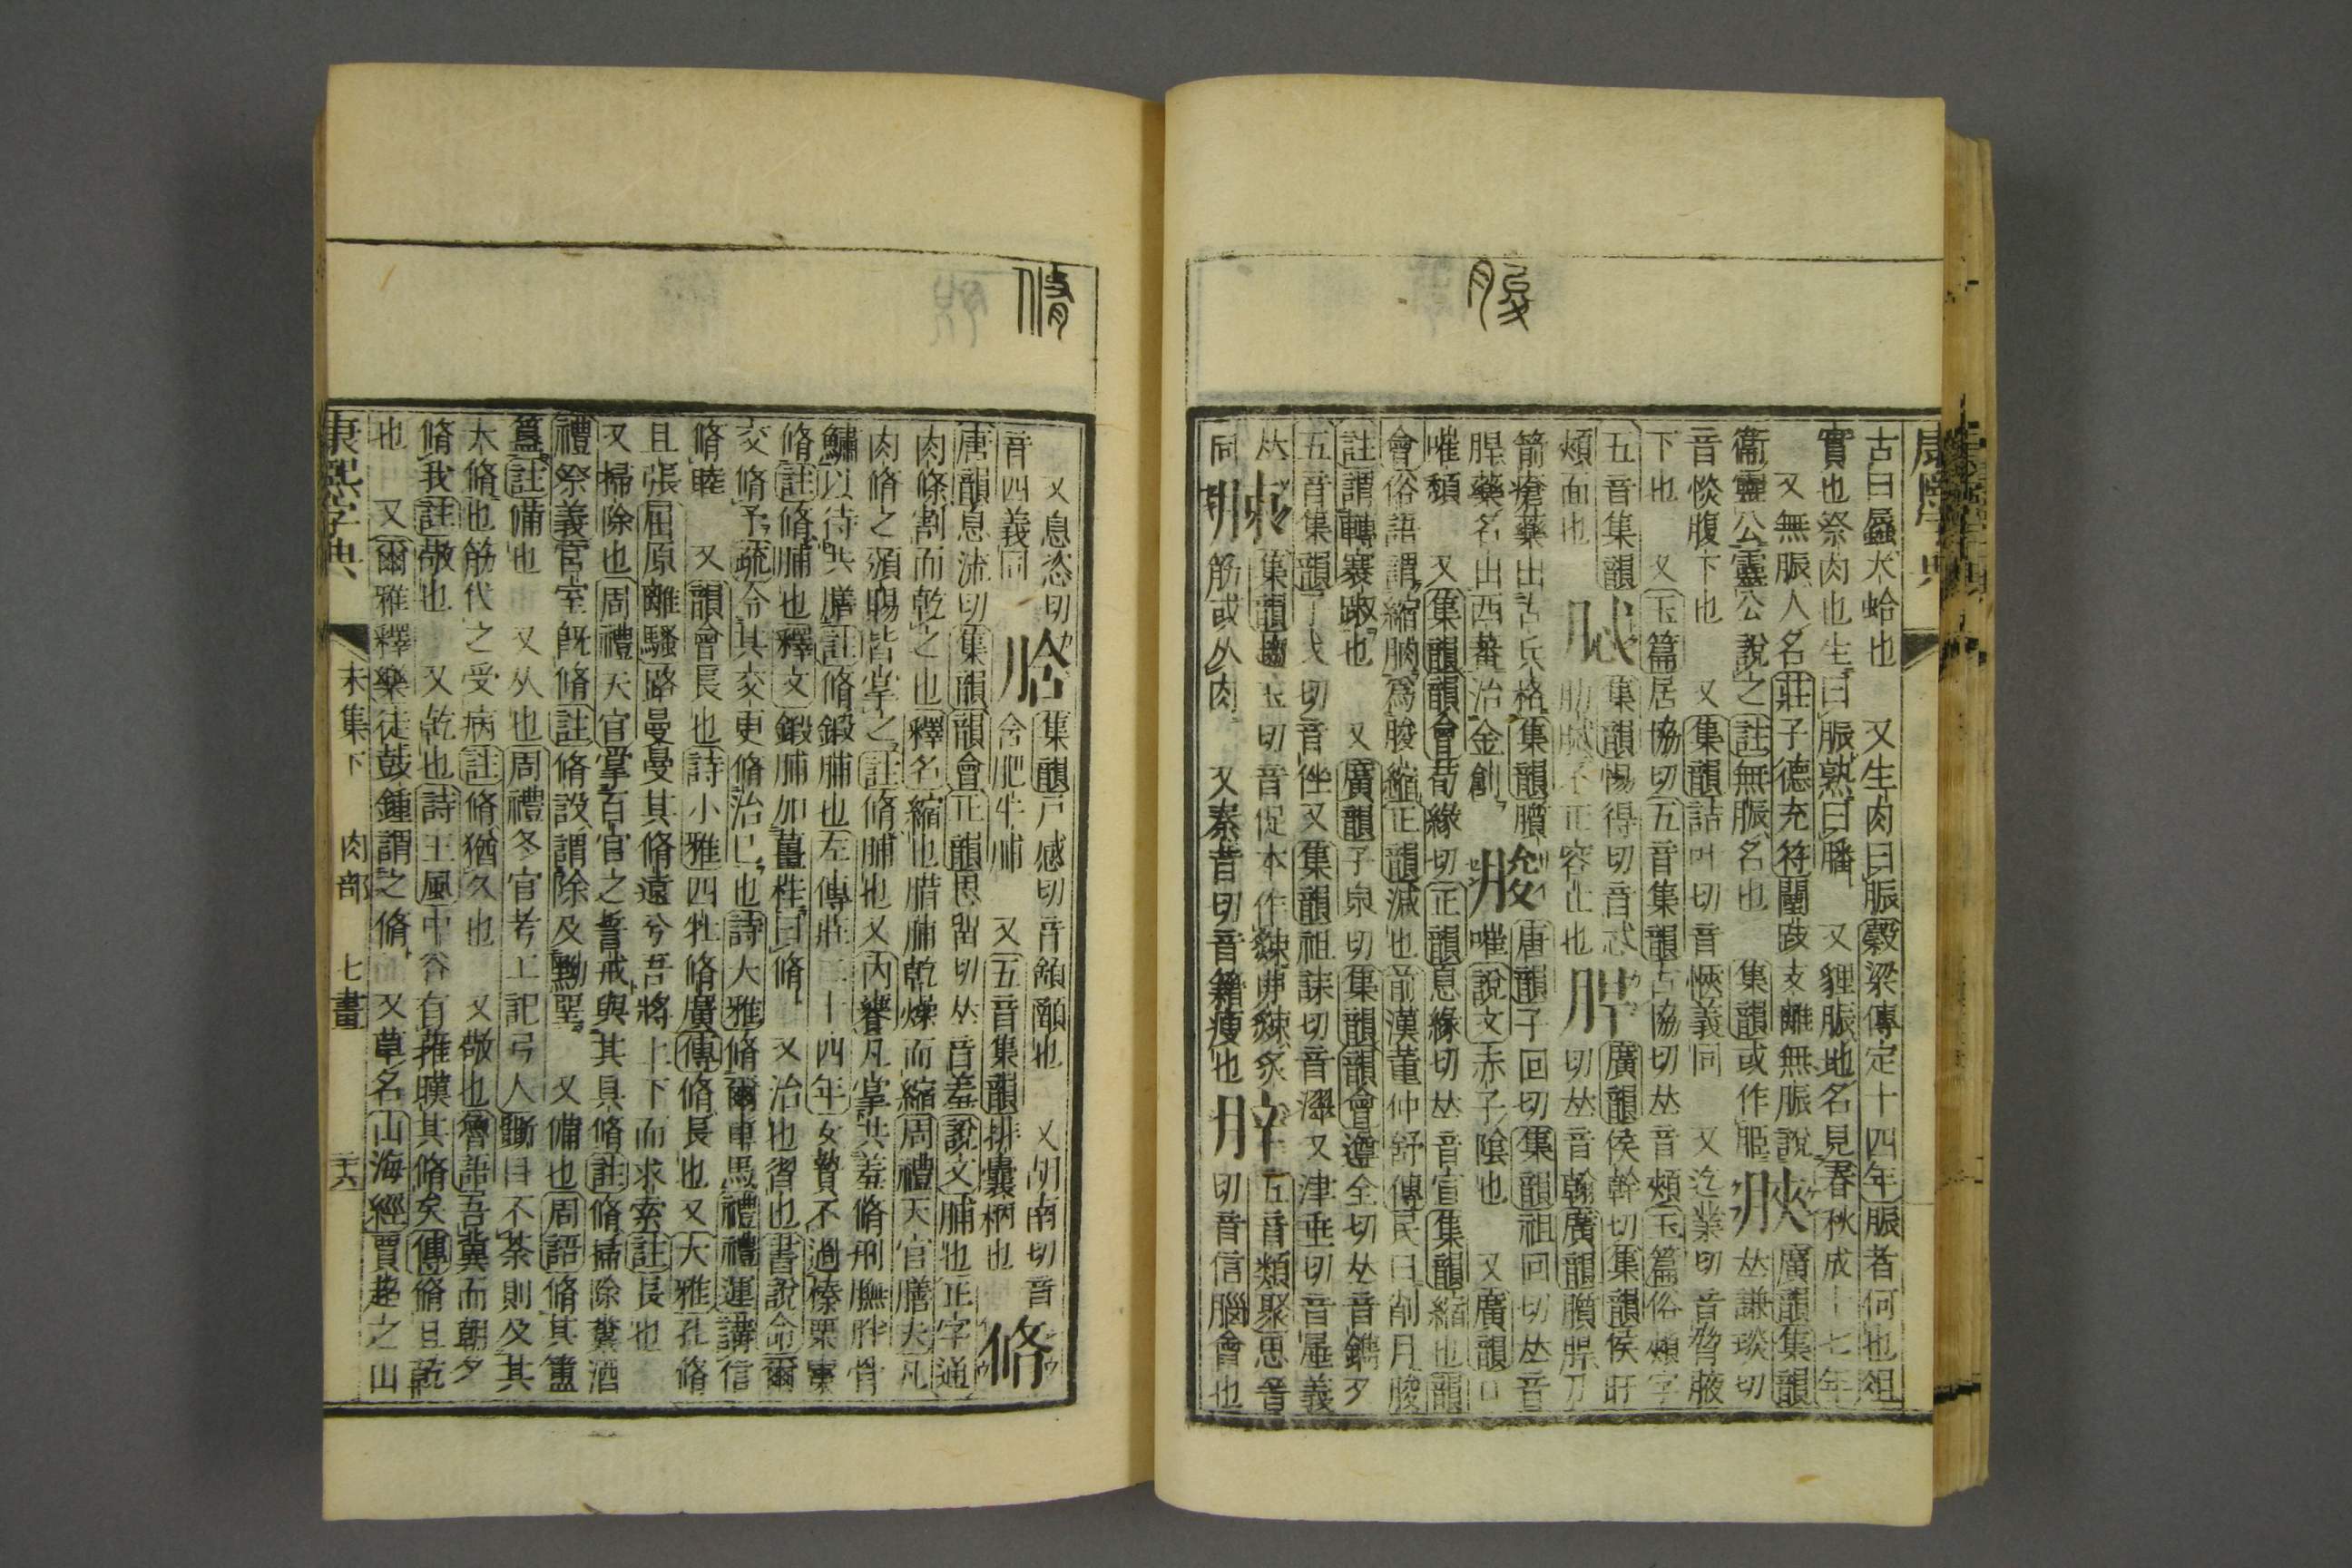 朘
古曰蜃大蛤也　又生肉曰脤穀梁傳定十四年脤者何也俎
實也祭肉也生曰脤熟曰膰　又貍脤地名見春秋成十七年
又無脤人名莊子德充符闉跂支離無脤說
衞靈公靈公說之註無脤名也　集韻或作䏾　脥　廣韻集韻
𠀤謙琰切
音惔腹下也　又集韻詰叶切音愜義同　又迄業切音脅腋
下也　又玉篇居協切五音集韻古協切𠀤音頰玉篇俗頰字
頰面也
五音集韻　集韻惕得切音忒　廣韻侯幹切集韻侯旰
切𠀤音翰廣韻膹脺
箭瘡藥出古兵格集韻膹　唐韻子回切集韻祖回切𠀤音
脺藥名出西蕃治金創　朘　唯說文赤子陰也　又廣韻
唯頹　又集韻韻會荀緣切正韻息緣切𠀤音宣集韻縮也韻
會俗語謂縮朒爲朘縮正韻減也前漢董仲舒傳民日削月朘
註謂轉蹇踧也　又廣韻子泉切集韻韻會遵全切𠀤音鐫
五音集韻　切音佺又集韻祖誄切音濢又津垂切音厜義
𠀤
同
集韻　玉切音促本作餗
筋或从肉　又秦昔切音籍瘦也　五音類聚思晉
切音信腦會也
康熙字典
脩
又息恣切
音四義同　脍　集韻戶感切音頷䐄也　又胡南切音
含肥牛脯　又五音集韻排囊柄也　脩
唐韻息流切集韻韻會正韻思留切𠀤音羞說文脯也正字通
肉條割而乾之也釋名縮也腊脯乾燥而縮周禮天官膳夫凡
肉脩之頒賜皆掌之註脩脯也又內饔凡掌共羞脩刑膴胖骨
鱐以待共膳註脩鍛脯也左傳莊二十四年女贄不過榛栗棗
脩註脩脯也釋文鍛脯加薑桂曰脩　又治也習也書說命爾
交脩予疏令其交更脩治己也詩大雅脩爾車馬禮禮運講信
脩睦　又韻會長也詩小雅四牡脩廣傳脩長也又大雅孔脩
且張屈原離騷路曼曼其脩遠兮吾將上下而求索註長也
又掃除也周禮天官掌百官之誓戒與其具脩註脩掃除糞洒
禮祭義宮室旣脩註脩設謂除及黝堊　又備也周語脩其簠
簋註備也　又从也周禮冬官考工記弓人斲目不荼則及其
大脩也筋代之受病註脩猶久也　又敬也魯語吾冀而朝夕
脩我註敬也　又乾也詩王風中谷有蓷暵其脩矣傳脩且乾
也　又爾雅釋樂徒鼓鍾謂之脩　又草名山海經賈超之山
康熙字典　未集下　肉部　七畫